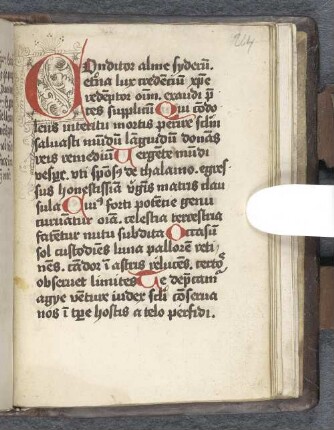 Conditor alme syderū.
etīna lux credenciū xp̄e
redēptor oīm. exaudi p̄
ces supplicū Qui cōdo
lens interitu mortis perire sclm̄
saluasti mūdū lāguidū donās
reis remediū Uergēte mūdi
vespe. vti spōsꝰ de thalamo. egres
sus honestissīa vgīs matris clau
sula Cuiꝰ forti potēcie genu
curuātur oīa. celestia terrestria
fatētur nutu subdita Occasū
sol custodiēs luna pallorē reti
nēs. cādor ī astris relucēs. certoˢ
obseruet limites Te dep̄camꝰ
agye vēture iudex scli cōserua
nos ī tp̄e hostis a telo perfidi.